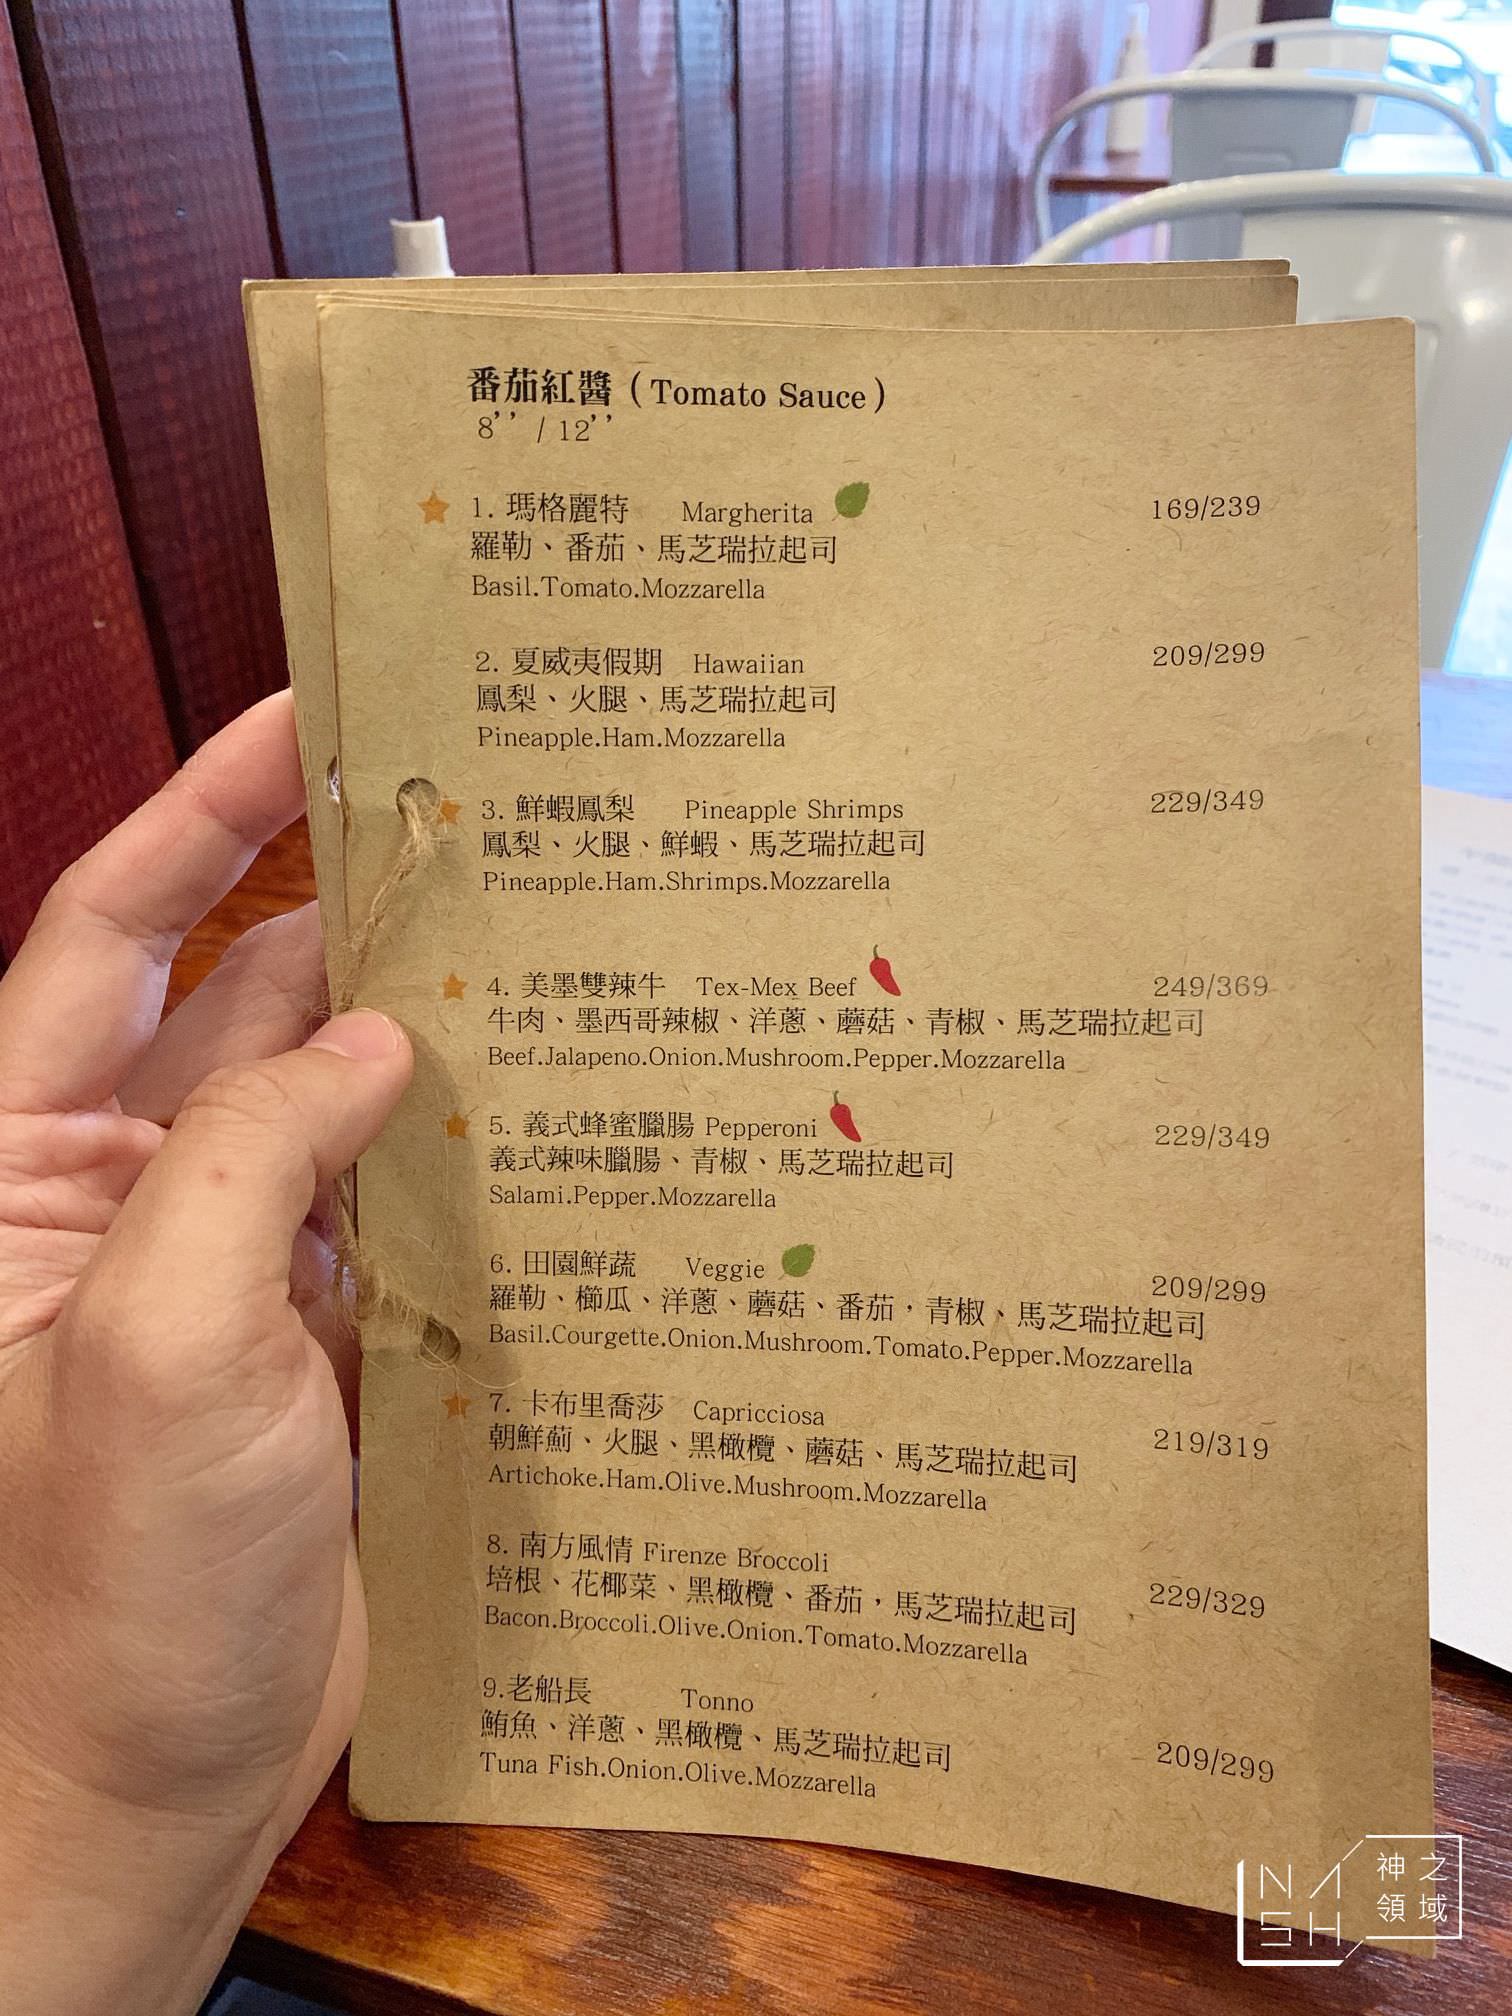 番茄紅醬（Tomato Sauce）
8’’ / 12’’
1. 瑪格麗特 Margherita 169/239
羅勒、番茄、馬芝瑞拉起司
Basil.Tomato.Mozzarella
2. 夏威夷假期 Hawaiian 209/299
鳳梨、火腿、馬芝瑞拉起司
Pineapple.Ham.Mozzarella
3. 鮮蝦鳳梨 Pineapple Shrimps 229/349
鳳梨、火腿、鮮蝦、馬芝瑞拉起司
Pineapple.Ham.Shrimps.Mozzarella
4. 美墨雙辣牛 Tex-Mex Beef 249/369
牛肉、墨西哥辣椒、洋蔥、蘑菇、青椒、馬芝瑞拉起司
Beef.Jalapeno.Onion.Mushroom.Pepper.Mozzarella
5. 義式蜂蜜臘腸 Pepperoni 229/349
義式辣味臘腸、青椒、馬芝瑞拉起司
Salami.Pepper.Mozzarella
6. 田園鮮蔬 Veggie 209/299
羅勒、櫛瓜、洋蔥、蘑菇、番茄，青椒、馬芝瑞拉起司
Basil.Courgette.Onion.Mushroom.Tomato.Pepper.Mozzarella
7. 卡布里喬莎 Capricciosa 219/319
朝鮮薊、火腿、黑橄欖、蘑菇、馬芝瑞拉起司
Artichoke.Ham.Olive.Mushroom.Mozzarella
8. 南方風情 Firenze Broccoli 229/329
培根、花椰菜、黑橄欖、番茄，馬芝瑞拉起司
Bacon.Broccoli.Olive.Onion.Tomato.Mozzarella
9.老船長 Tonno 209/299
鮪魚、洋蔥、黑橄欖、馬芝瑞拉起司
Tuna Fish.Onion.Olive.Mozzarella
NASH
神之領域